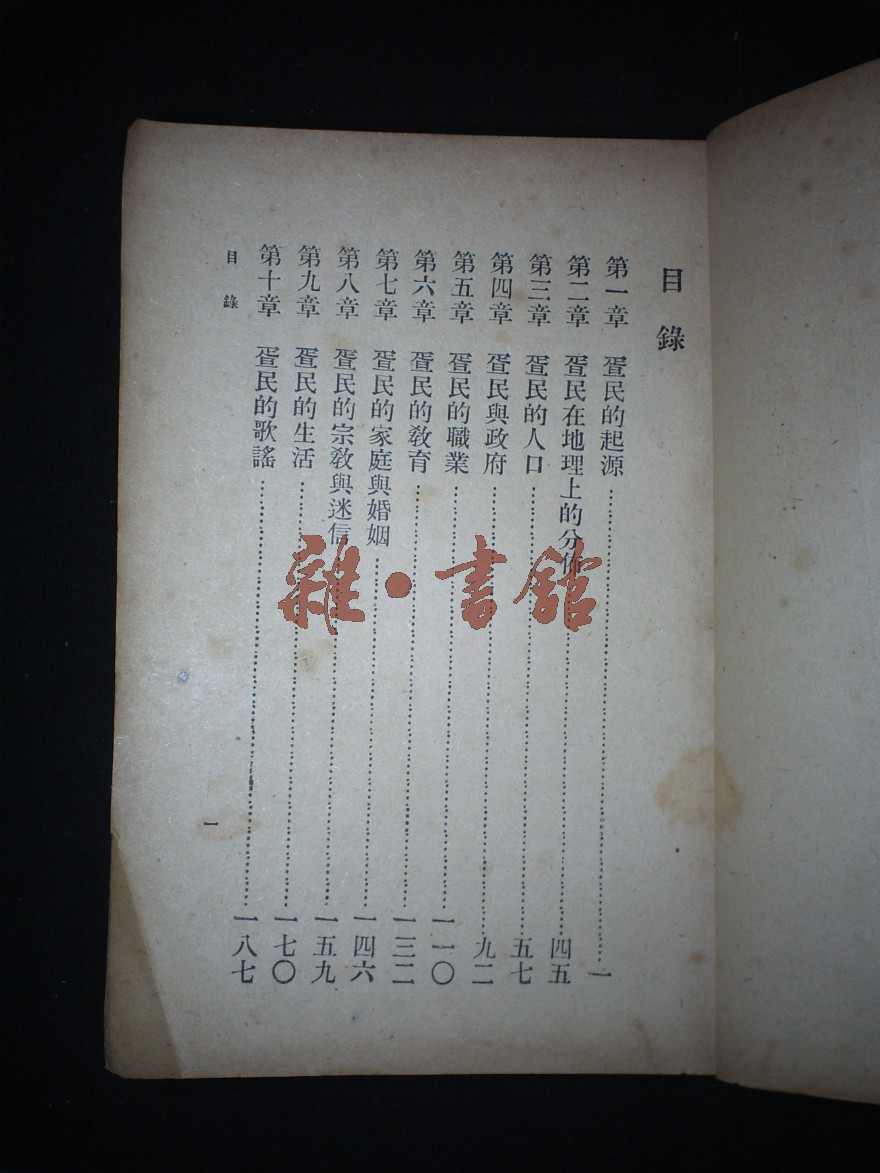 目錄
第一章　疍民的起源……一
第二章　疍民在地理上的分佈……四五
第三章　疍民的人口……五七
第四章　疍民與政府……九二
第五章　疍民的職業……一一〇
第六章　疍民的教育……一三二
第七章　疍民的家庭與婚姻……一四六
第八章　疍民的宗教與迷信……一五九
第九章　疍民的生活……一七〇
第十章　疍民的歌謠……一八七
目錄　一
雜·書館